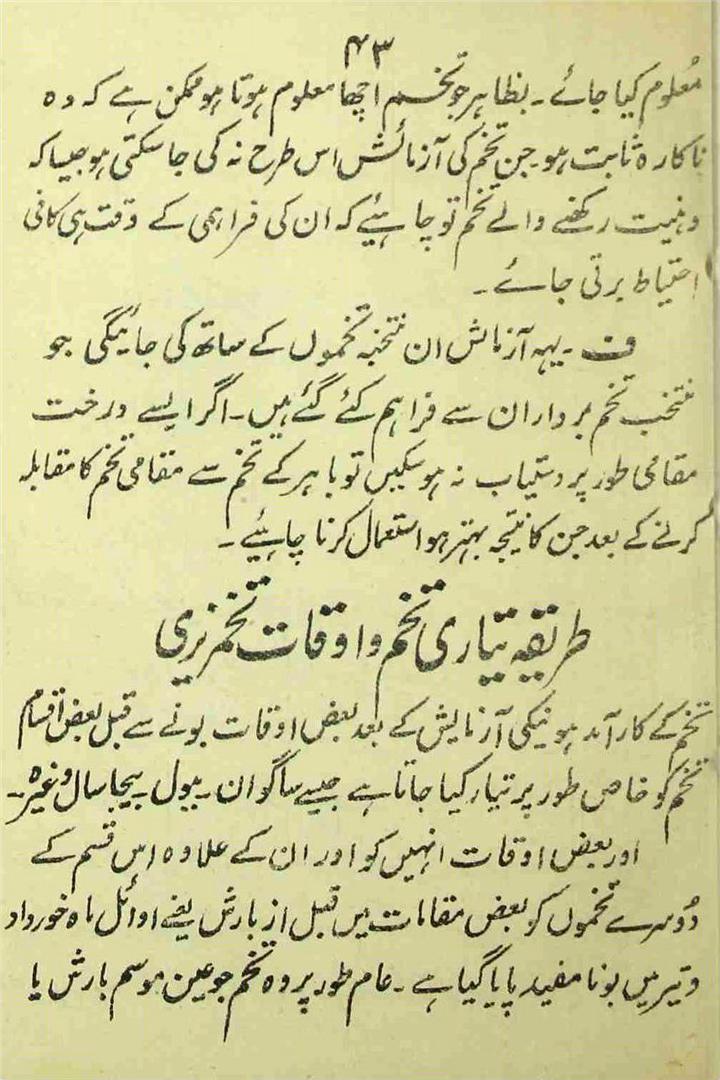 ۴۳
معلوم کیا جائے۔ بظاہر جو تخم اچھا معلوم ہوتا ہو ممکن ہے کہ وہ
ناکارہ ثابت ہو۔ جن تخم کی آزمائش اس طرح نہ کی جا سکتی ہو جیسا کہ
دہنیت رکھنے والے تخم تو چاہیئے کہ ان کی فراہمی کے وقت ہی کافی
احتیاط برتی جائے۔
ف۔ یہہ آزمائش ان منتخبہ تخموں کے ساتھ کی جائیگی جو
منتخب تخم برداران سے فراہم کئے گئے ہیں۔ اگر ایسے درخت
مقامی طور پر دستیاب نہ ہو سکیں تو باہر کے تخم سے مقامی تخم کا مقابلہ
کرنے کے بعد جن کا نتیجہ بہتر ہو استعمال کرنا چاہیئے۔
طریقہ تیاری تخم و اوقات تخمریزی
تخم کے کارآمد ہونیکی آزمایش کے بعد بعض اوقات بونے سے قبل بعض اقسام
تخم کو خاص طور پر تیار کیا جاتا ہے جیسے ساگوان۔ ببول۔ بیجا سال وغیرہ۔
اور بعض اوقات انہیں کو اور ان کے علاوہ اس قسم کے
دوسرے تخموں کو بعض مقامات میں قبل از بارش یعنے اوائل ماہ خورداد
و تیر میں بونا مفید پایا گیا ہے۔ عام طور پر وہ تخم جو عین موسم بارش یا